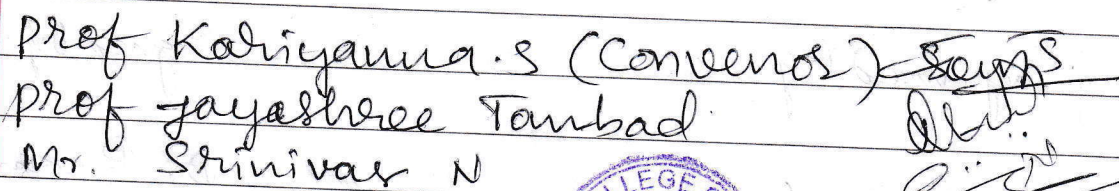 Prof Kariyanna.S (Convenor)
Prof Jayashree Tambad
Mr. Srinivas N
LLEGE